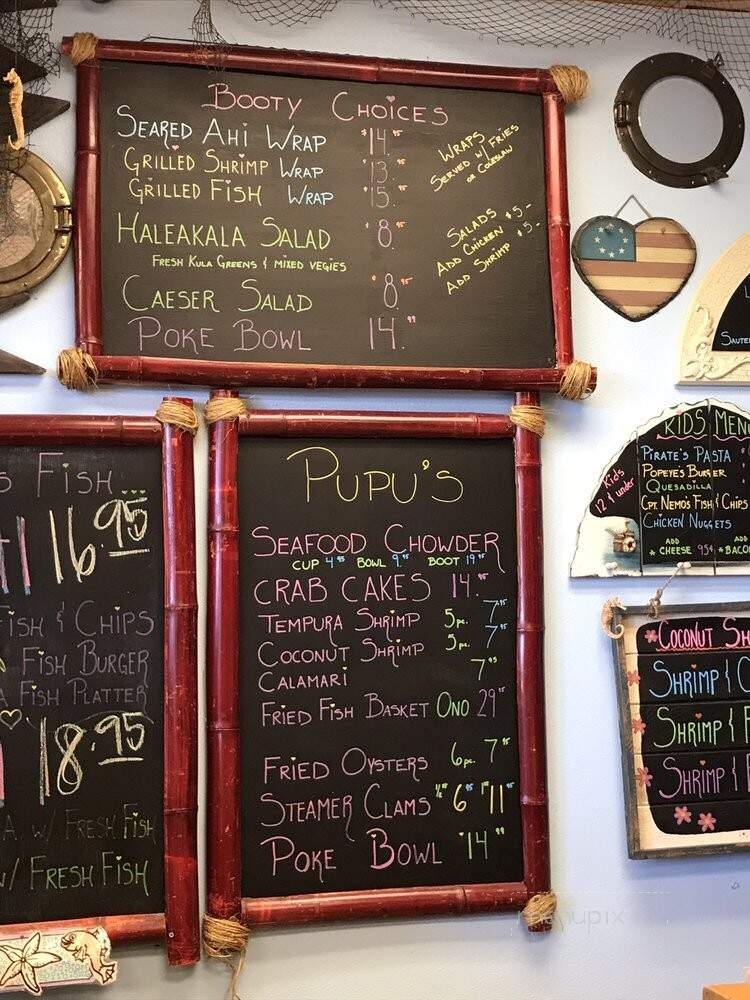 Booty Choices
Seared Ahi Wrap $14.95
Grilled Shrimp Wrap $13.95
Grilled Fish Wrap $15.95
Wraps
Served w/ Fries
or Coleslaw
Haleakala Salad $8.95
Fresh Kula Greens & Mixed Vegies
Salads
Add Chicken $5-
Add Shrimp $5-
Caeser Salad $8.95
Poke Bowl 14.99
Fish...
16.95
Fish & Chips
Fish Burger
Fish Platter
18.95
w/ Fresh Fish
w/ Fresh Fish
Pupu's
Seafood Chowder
Cup 4.95 Bowl 9.95 Boot 19.95
Crab Cakes 14.95
Tempura Shrimp 5pc. 7.95
Coconut Shrimp 5pc. 7.95
Calamari 7.95
Fried Fish Basket Ono 29
Fried Oysters 6pc. 7.95
Steamer Clams 6.95 11.95
Poke Bowl $14.99
Kids Menu
Kids
12 & under
Pirate's Pasta
Popeye's Burger
Quesadilla
Cpt. Nemo's Fish & Chips
Chicken Nuggets
Add
* Cheese 95¢
Add
Coconut Sh
Shrimp &
Shrimp &
Shrimp &
menupix